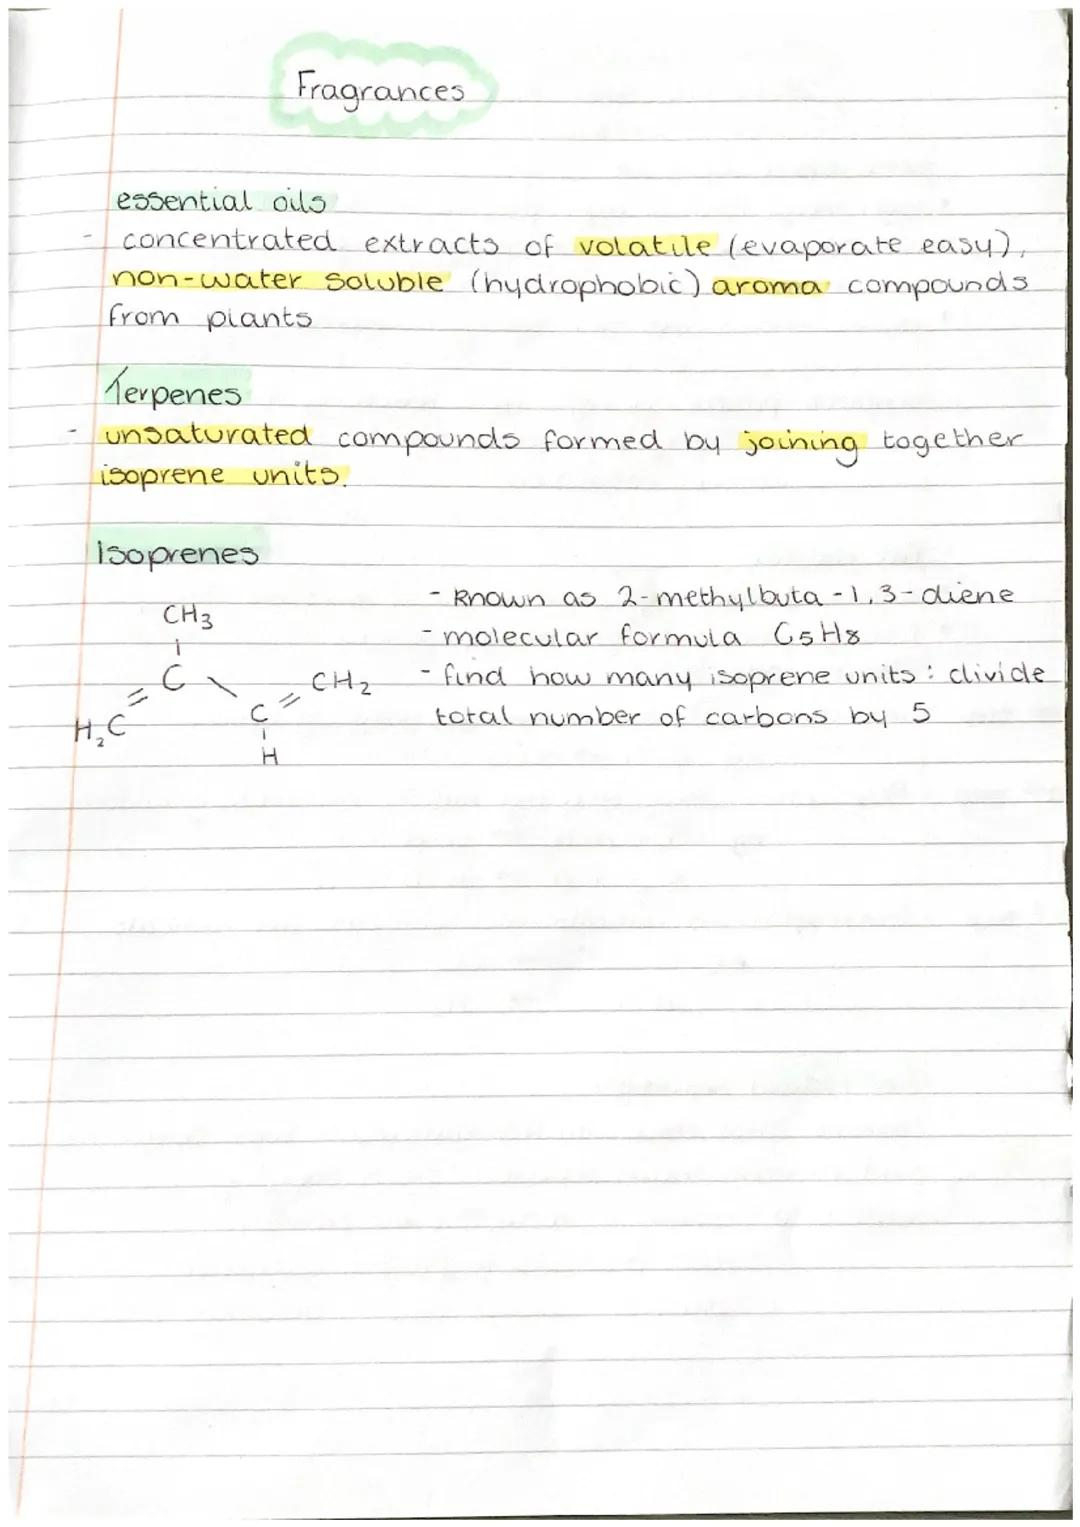 Fragrances
essential oils
- concentrated extracts of volatile (evaporate easy),
non-water soluble (hydrophobic) aroma compounds
from plants
Terpenes
- unsaturated compounds formed by joining together
isoprene units.
Isoprenes
- Known as 2-methylbuta-1,3-diene
CH3
- molecular formula C5H8
C
CH2
- find how many isoprene units: divide
H2C
C
total number of carbons by 5
H